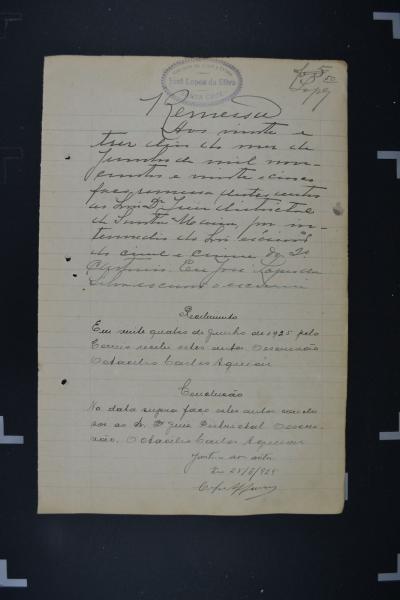 José Lopes da Silva
Remessa
Aos vinte e
tres dias do mez de
Junho de mil nove-
centos e vinte e cinco
faço remessa destes autos
ao Snr. Dr. Juiz districtal
de Santa Maria, por in-
termedio do Snr. escrivão
do civel e crime do 2º
Eu José Lopes da
Silva escrivão o escrevi
Recebimento
Em vinte quatro de Junho de 1925 pelo
Correio recebi estes autos. O escrivão
Octacilio Carlos Aguiar
Conclusão
Na data supra faço estes autos conclu-
sos ao Sr. Dr. Juiz Districtal. O escri-
vão. Octacilio Carlos Aguiar
aos autos